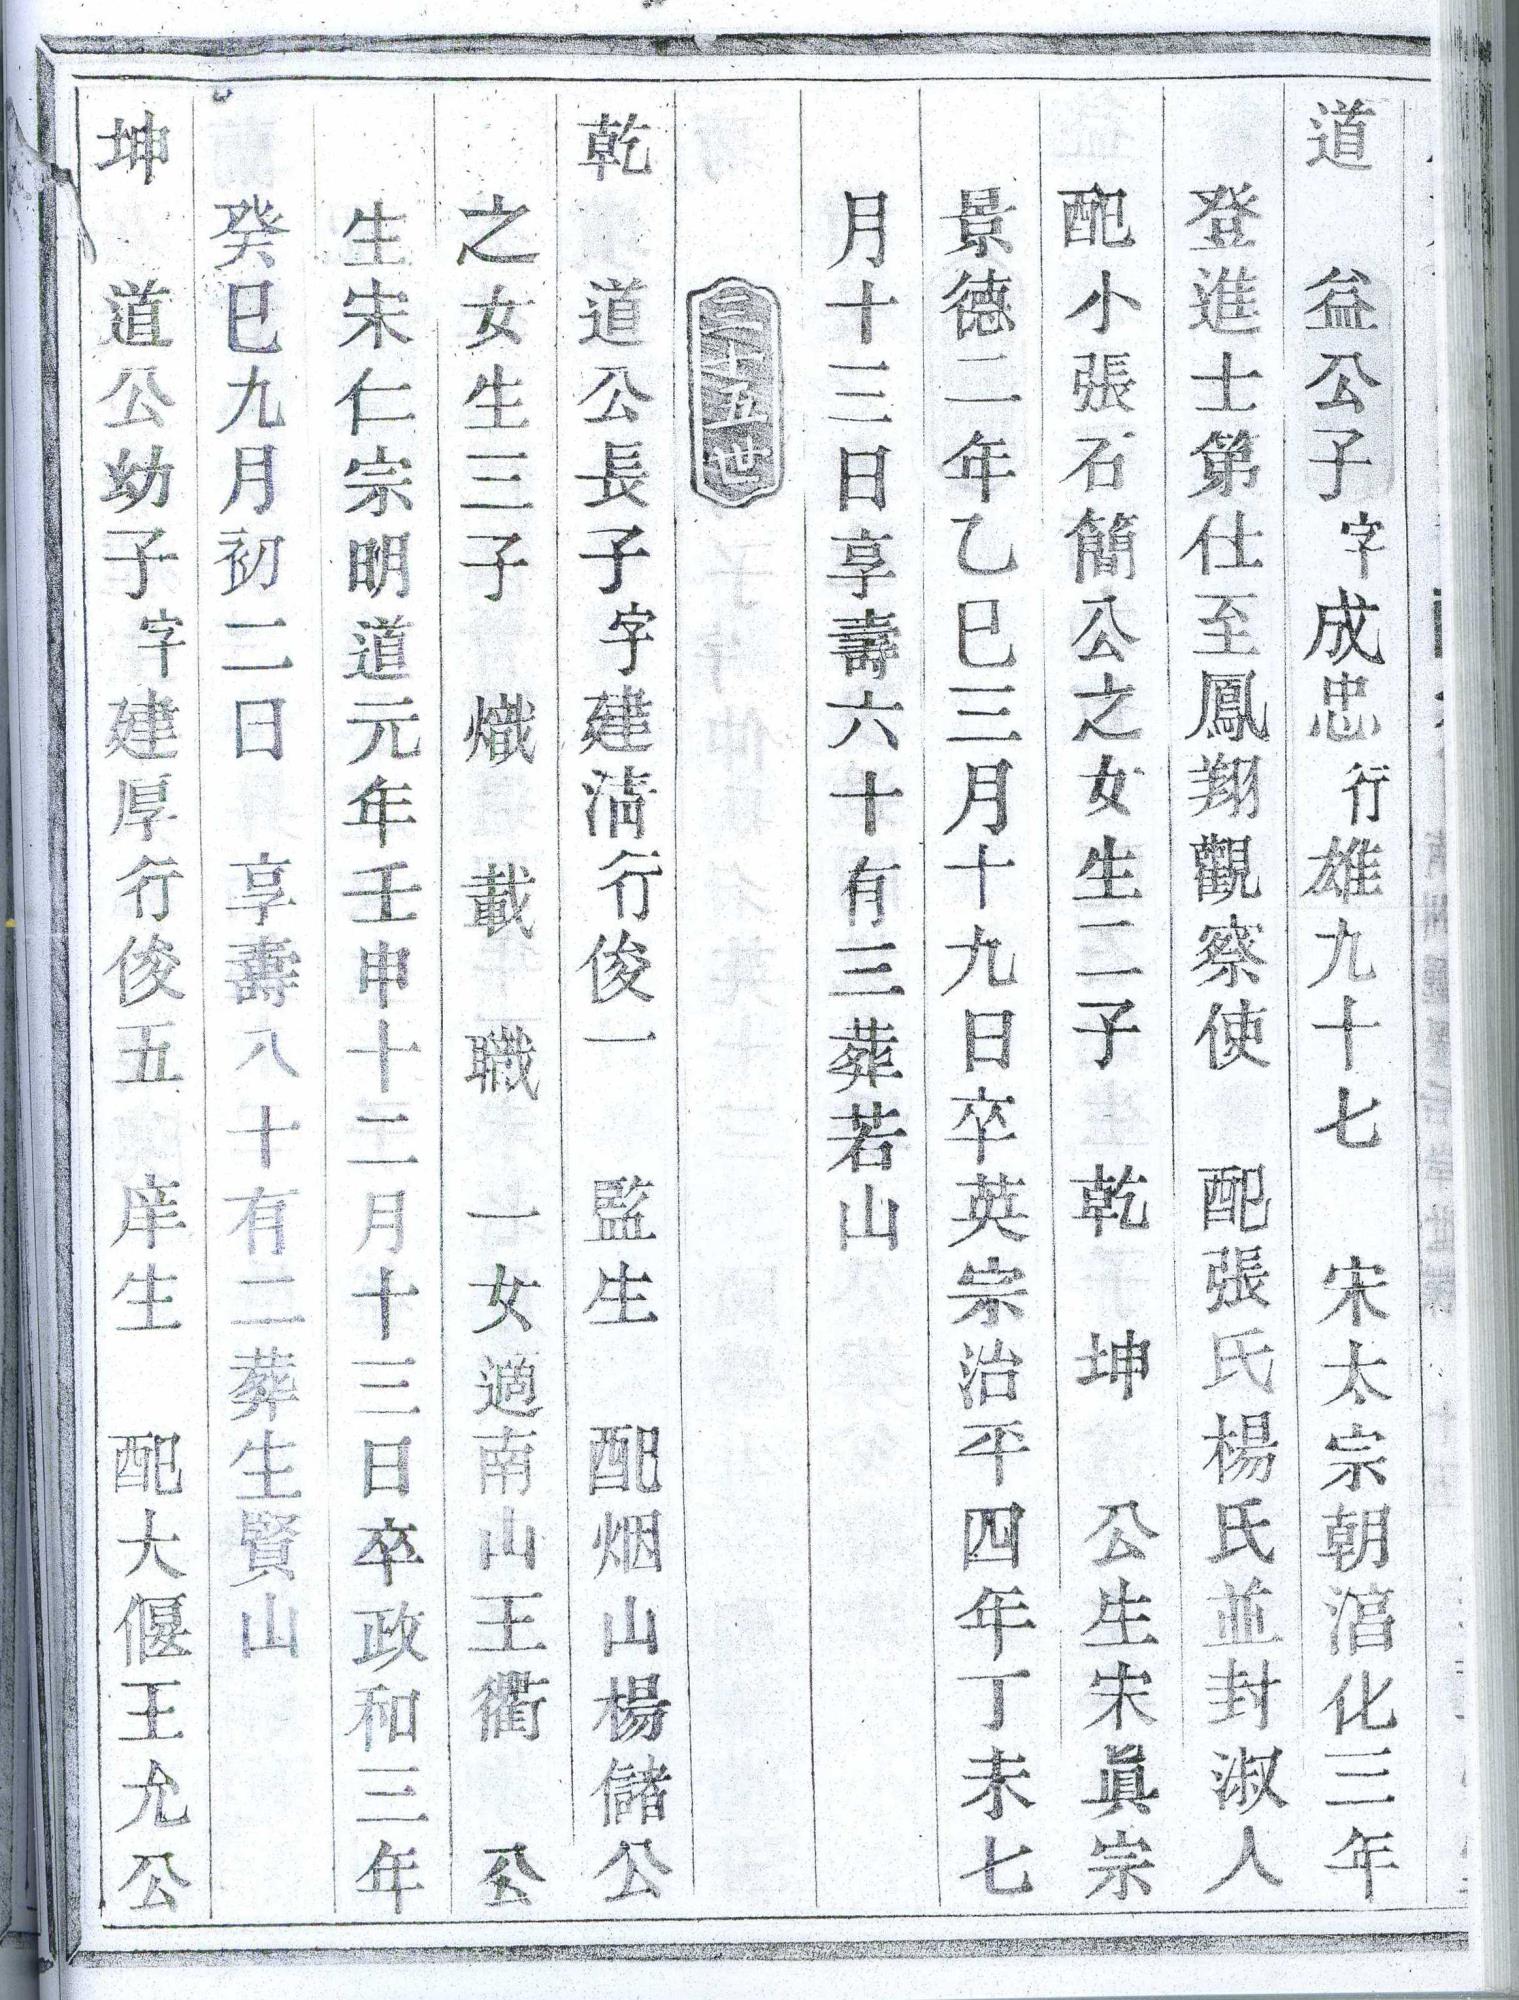 道 益公子字成忠行雄九十七 宋太宗朝淯化三年
登進士第仕至鳳翔觀察使 配張氏楊氏並封淑人
配小張石簡公之女生二子 乾 坤 公生宋眞宗
景德二年乙巳三月十九日卒英宗治平四年丁未七
月十三日享壽六十有三葬若山
三十五世
乾 道公長子字建淸行俊一 監生 配烟山楊儲公
之女生三子 熾 載 職 一女適南山王衢 公
生宋仁宗明道元年壬申十二月十三日卒政和三年
癸巳九月初二日 享壽八十有二葬生賢山
坤 道公幼子字建厚行俊五 庠生 配大偃王允公